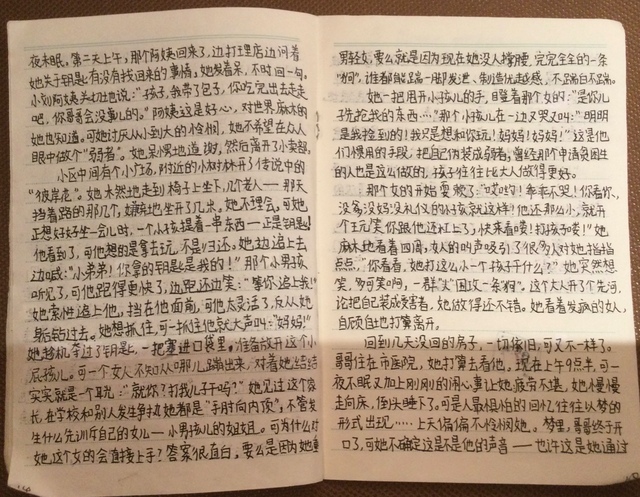 夜未眠。第二天上午,那个阿姨回来了,边打理店边问着
她关于钥匙有没有找回来的事情。她发着呆,不时回一句。
小刘阿姨关切地说:“孩子,我带了包子,你吃完出去走走
吧,你哥会没事儿的。”阿姨这是好心,对世界麻木的
她也知道。可她讨厌从小到大的怜悯,她不希望在众人
眼中做个“弱者”。她呆愣地道谢,然后离开了小卖部。
小区中间有个小广场,附近的小树林开了传说中的
“彼岸花”。她木然地走到椅子上坐下,几个老人——那天
挡着路的那几个,嫌弃地坐开了几米。她不理会。可她
正想好好坐一会儿时,一个小孩提着一串东西——正是钥匙!
他看到了,可他想的是拿去玩,不是归还。她边追上去
边喊:“小弟弟!你拿的钥匙是我的!”那个小男孩
听见了,可他跑得更快了,边跑还边笑:“等你追上我!”
她索性追上他,挡在他面前,可他太灵活了,反从她
身后钻过去。她想抓住,可一抓住他就大声叫:“妈妈!”
她趁机夺过了钥匙,一把塞进口袋里。准备放开这个小
屁孩儿。可一个女人不知从哪儿蹦出来,对着她结结
实实就是一个耳光:“就你?打我儿子干吗?”她见过这个家
长,在学校和别人发生争执她都是“手肘向内顶”,不管发
生什么先训斥自己的女儿——小男孩儿的姐姐。可为什么对
她,这个女的会直接上手?答案很直白,要么是因为她重
男轻女,要么就是因为现在她没人撑腰,完完全全的一条
“狗”,谁都能踹一脚发泄、制造优越感,不踹白不踹。
她一把甩开小孩儿的手,瞪着那个女的:“是你儿
子先抢我的东西…”那个小孩儿在一边又哭又叫:“明明
是我捡到的!我只是想和你玩!妈妈!妈妈!”这是他
们惯用的手段,把自己伪装成弱者,曾经那个申请贫困生
的人也是这么做的,孩子往往比大人做得更好。
那个女的开始耍赖了:“哎哟!乖乖不哭!你看你、
没爹没妈没礼仪的小孩就这样!他还那么小,就开
个玩笑你跟他还杠上了,快来看喽!打孩子喽!”她
麻木地看着四周,女人的叫声吸引了很多人对她指指
点点,“你看看,她打这么小一个孩子干什么?”她突然想
笑,多可笑啊,一群“火”围攻一条狗。这个大人开了个先河,
论把自己装成受害者,她做得还不错。她看着发疯的女人,
自顾自地打算离开。
回到几天没回的房子,一切像旧,可又不一样了。
哥哥住在市医院,她打算去看他。现在上午9点半,可一
夜不眠又加上刚刚的闹心事让她疲劳不堪,她慢慢
走向床,倒头睡下了。可是人最惧怕的回忆往往以梦的
形式出现……上天偏偏不怜悯她。梦里,哥哥终于开
口了,可她不确定这是不是他的声音——也许这是她通过